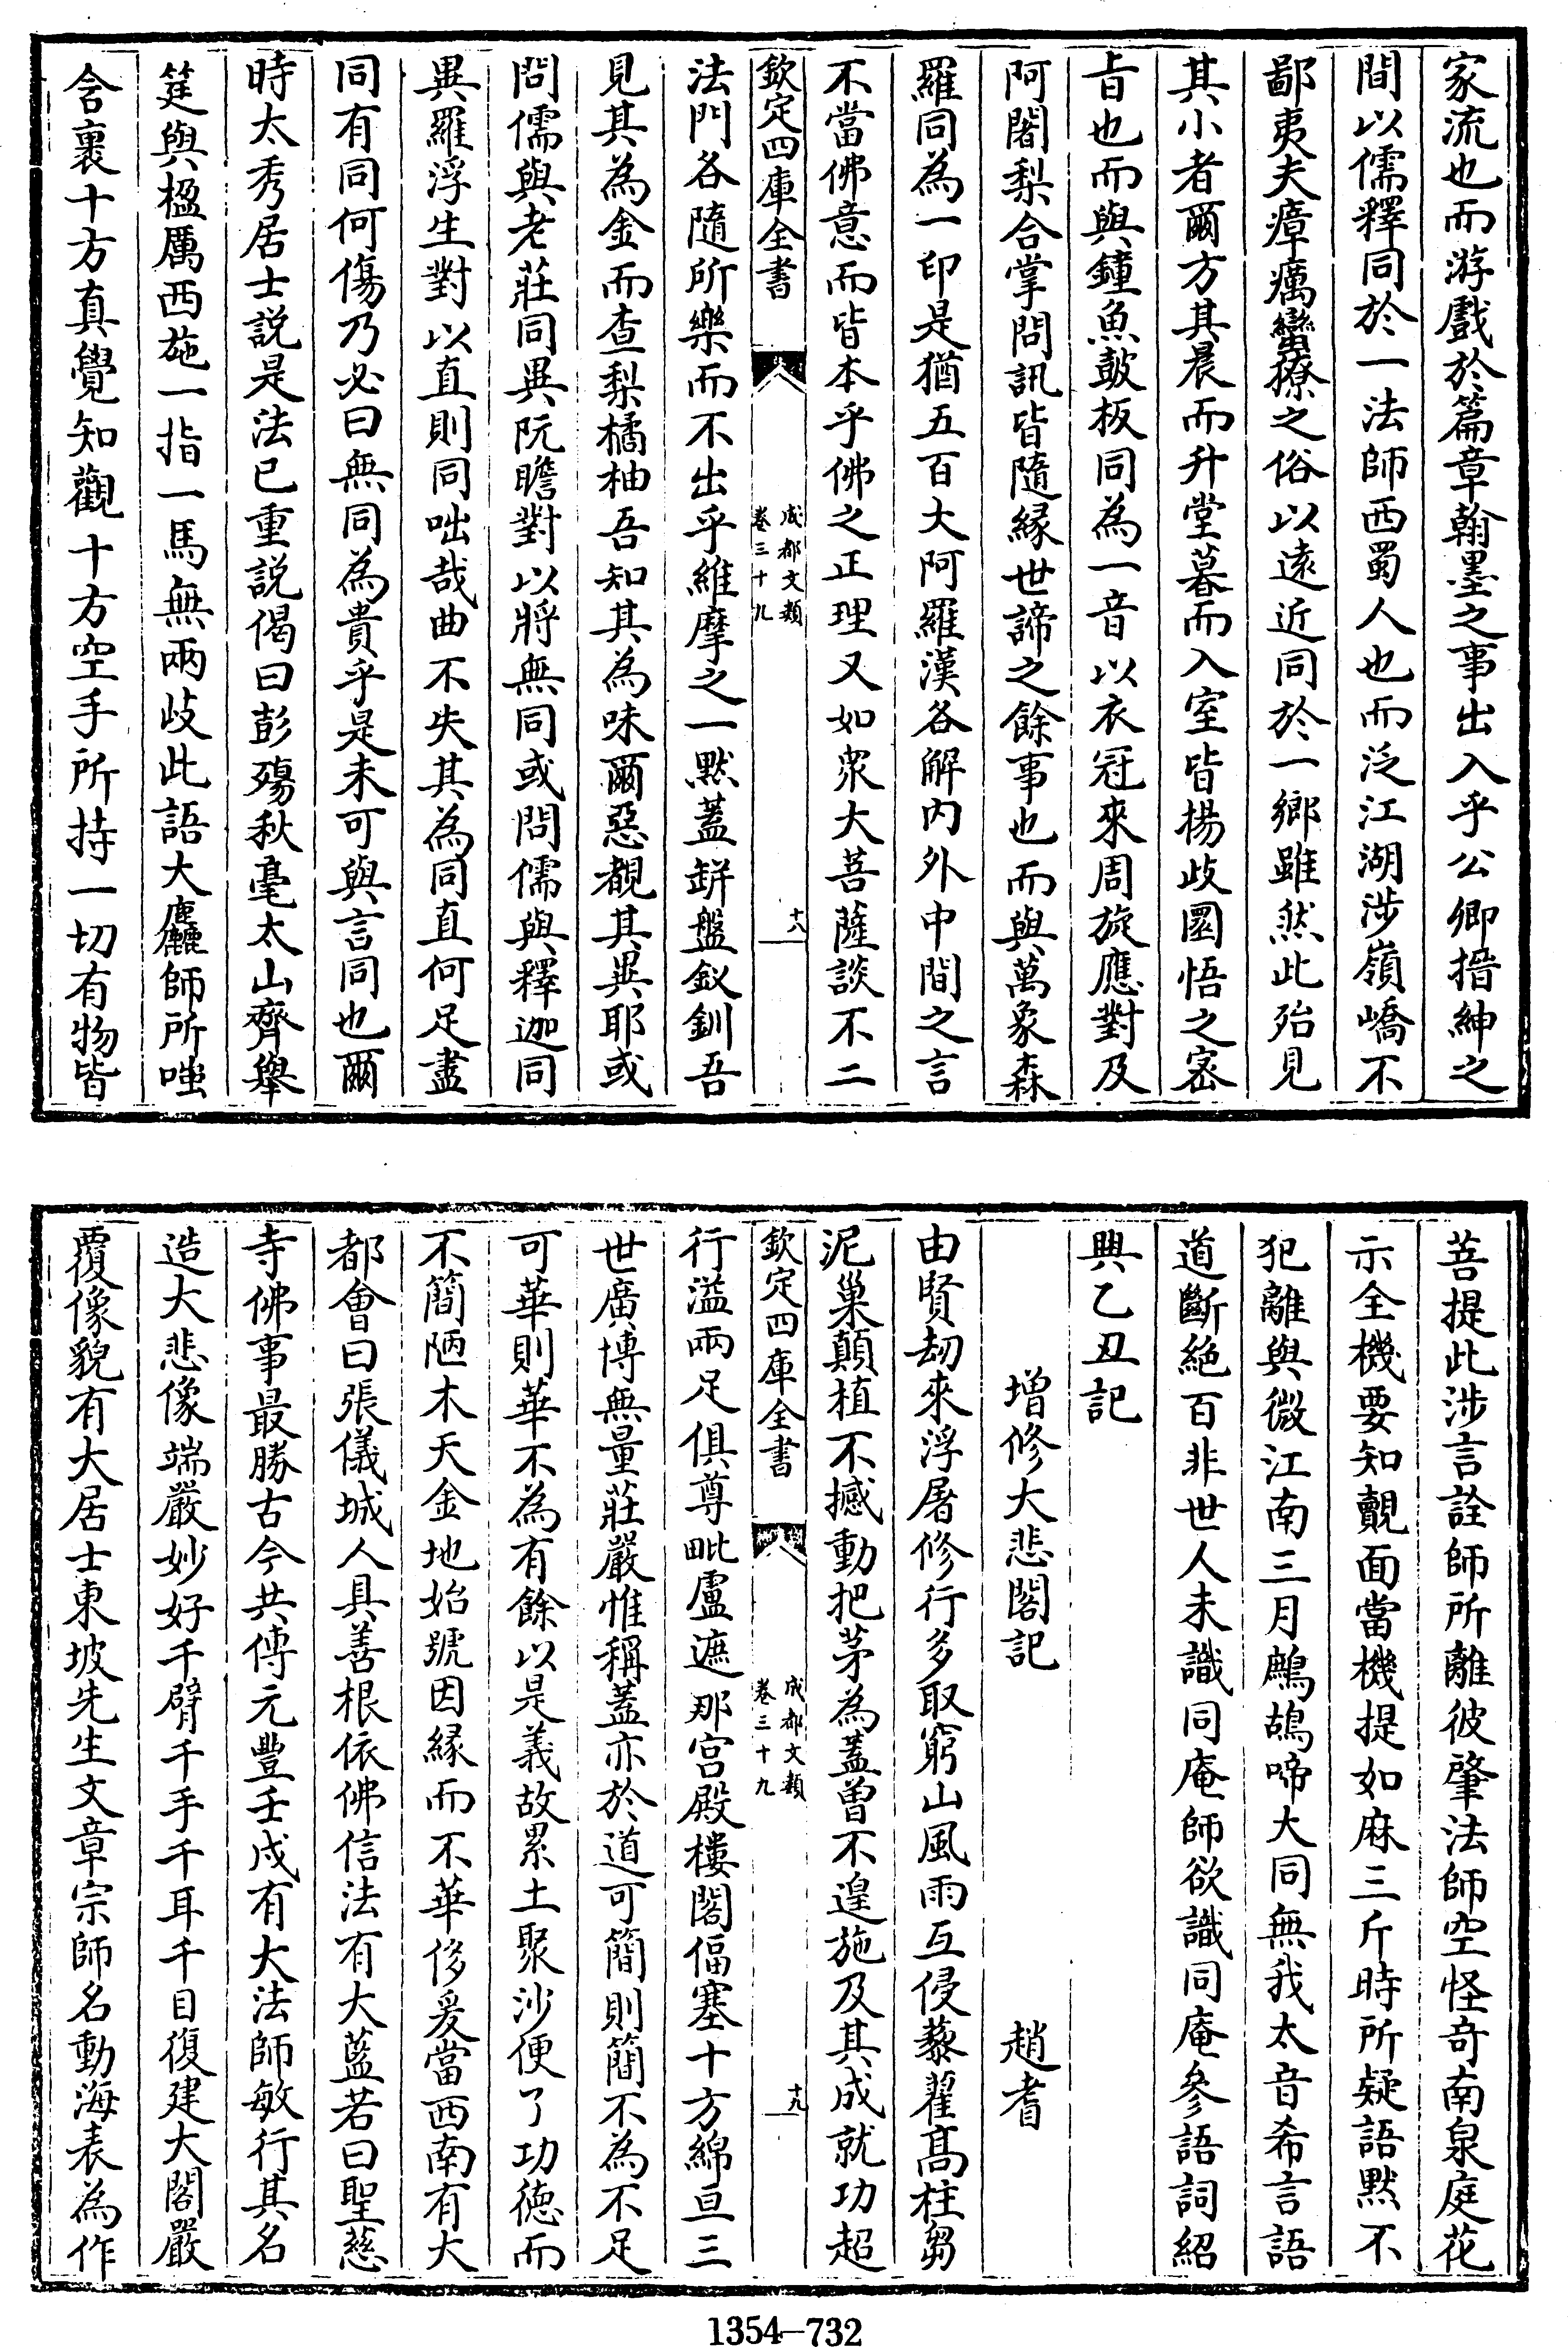 家流也而游戲於篇章翰墨之事出入乎公卿搢紳之
間以儒釋同於一法師西蜀人也而泛江湖涉嶺嶠不
鄙夷夫瘴癘蠻獠之俗以遠近同於一鄉雖然此殆見
其小者爾方其晨而升堂暮而入室皆揚歧圜悟之密
旨也而與鐘魚鼓板同為一音以衣冠來周旋應對及
阿闍梨合掌問訊皆隨緣世諦之餘事也而與萬象森
羅同為一印是猶五百大阿羅漢各解內外中間之言
不當佛意而皆本乎佛之正理又如衆大菩薩談不二
欽定四庫全書
成都文類
卷三十九
十八
法門各隨所樂而不出乎維摩之一黙蓋缾盤釵釧吾
見其為金而查梨橘柚吾知其為味爾惡覩其異耶或
問儒與老莊同異阮瞻對以將無同或問儒與釋迦同
異羅浮生對以直則同咄哉曲不失其為同直何足盡
同有同何傷乃必曰無同為貴乎是未可與言同也爾
時太秀居士説是法已重説偈曰彭殤秋毫太山齊舉
筳與楹厲西施一指一馬無兩歧此語大麤師所嗤
含裹十方真覺知觀十方空手所持一切有物皆
菩提此涉言詮師所離彼肇法師空怪奇南泉庭花
示全機要知覿面當機提如麻三斤時所疑語黙不
犯離與微江南三月鷓鴣啼大同無我太音希言語
道斷絶百非世人未識同庵師欲識同庵參語詞紹
興乙丑記
增修大悲閣記 趙耆
由賢刼來浮屠修行多取窮山風雨互侵藜藿髙柱芻
泥巢顛植不撼動把茅為蓋曽不遑施及其成就功超
欽定四庫全書
成都文類
卷三十九
十九
行溢兩足俱尊毗盧遮那宫殿樓閣偪塞十方綿亘三
世廣博無量莊嚴惟稱蓋亦於道可簡則簡不為不足
可華則華不為有餘以是義故累土聚沙便了功德而
不簡陋木天金地始號因緣而不華侈爰當西南有大
都會曰張儀城人具善根依佛信法有大藍若曰聖慈
寺佛事最勝古今共傳元豐壬戌有大法師敏行其名
造大悲像端嚴妙好千臂千手千耳千目復建大閣嚴
覆像貌有大居士東坡先生文章宗師名動海表為作
1354—732